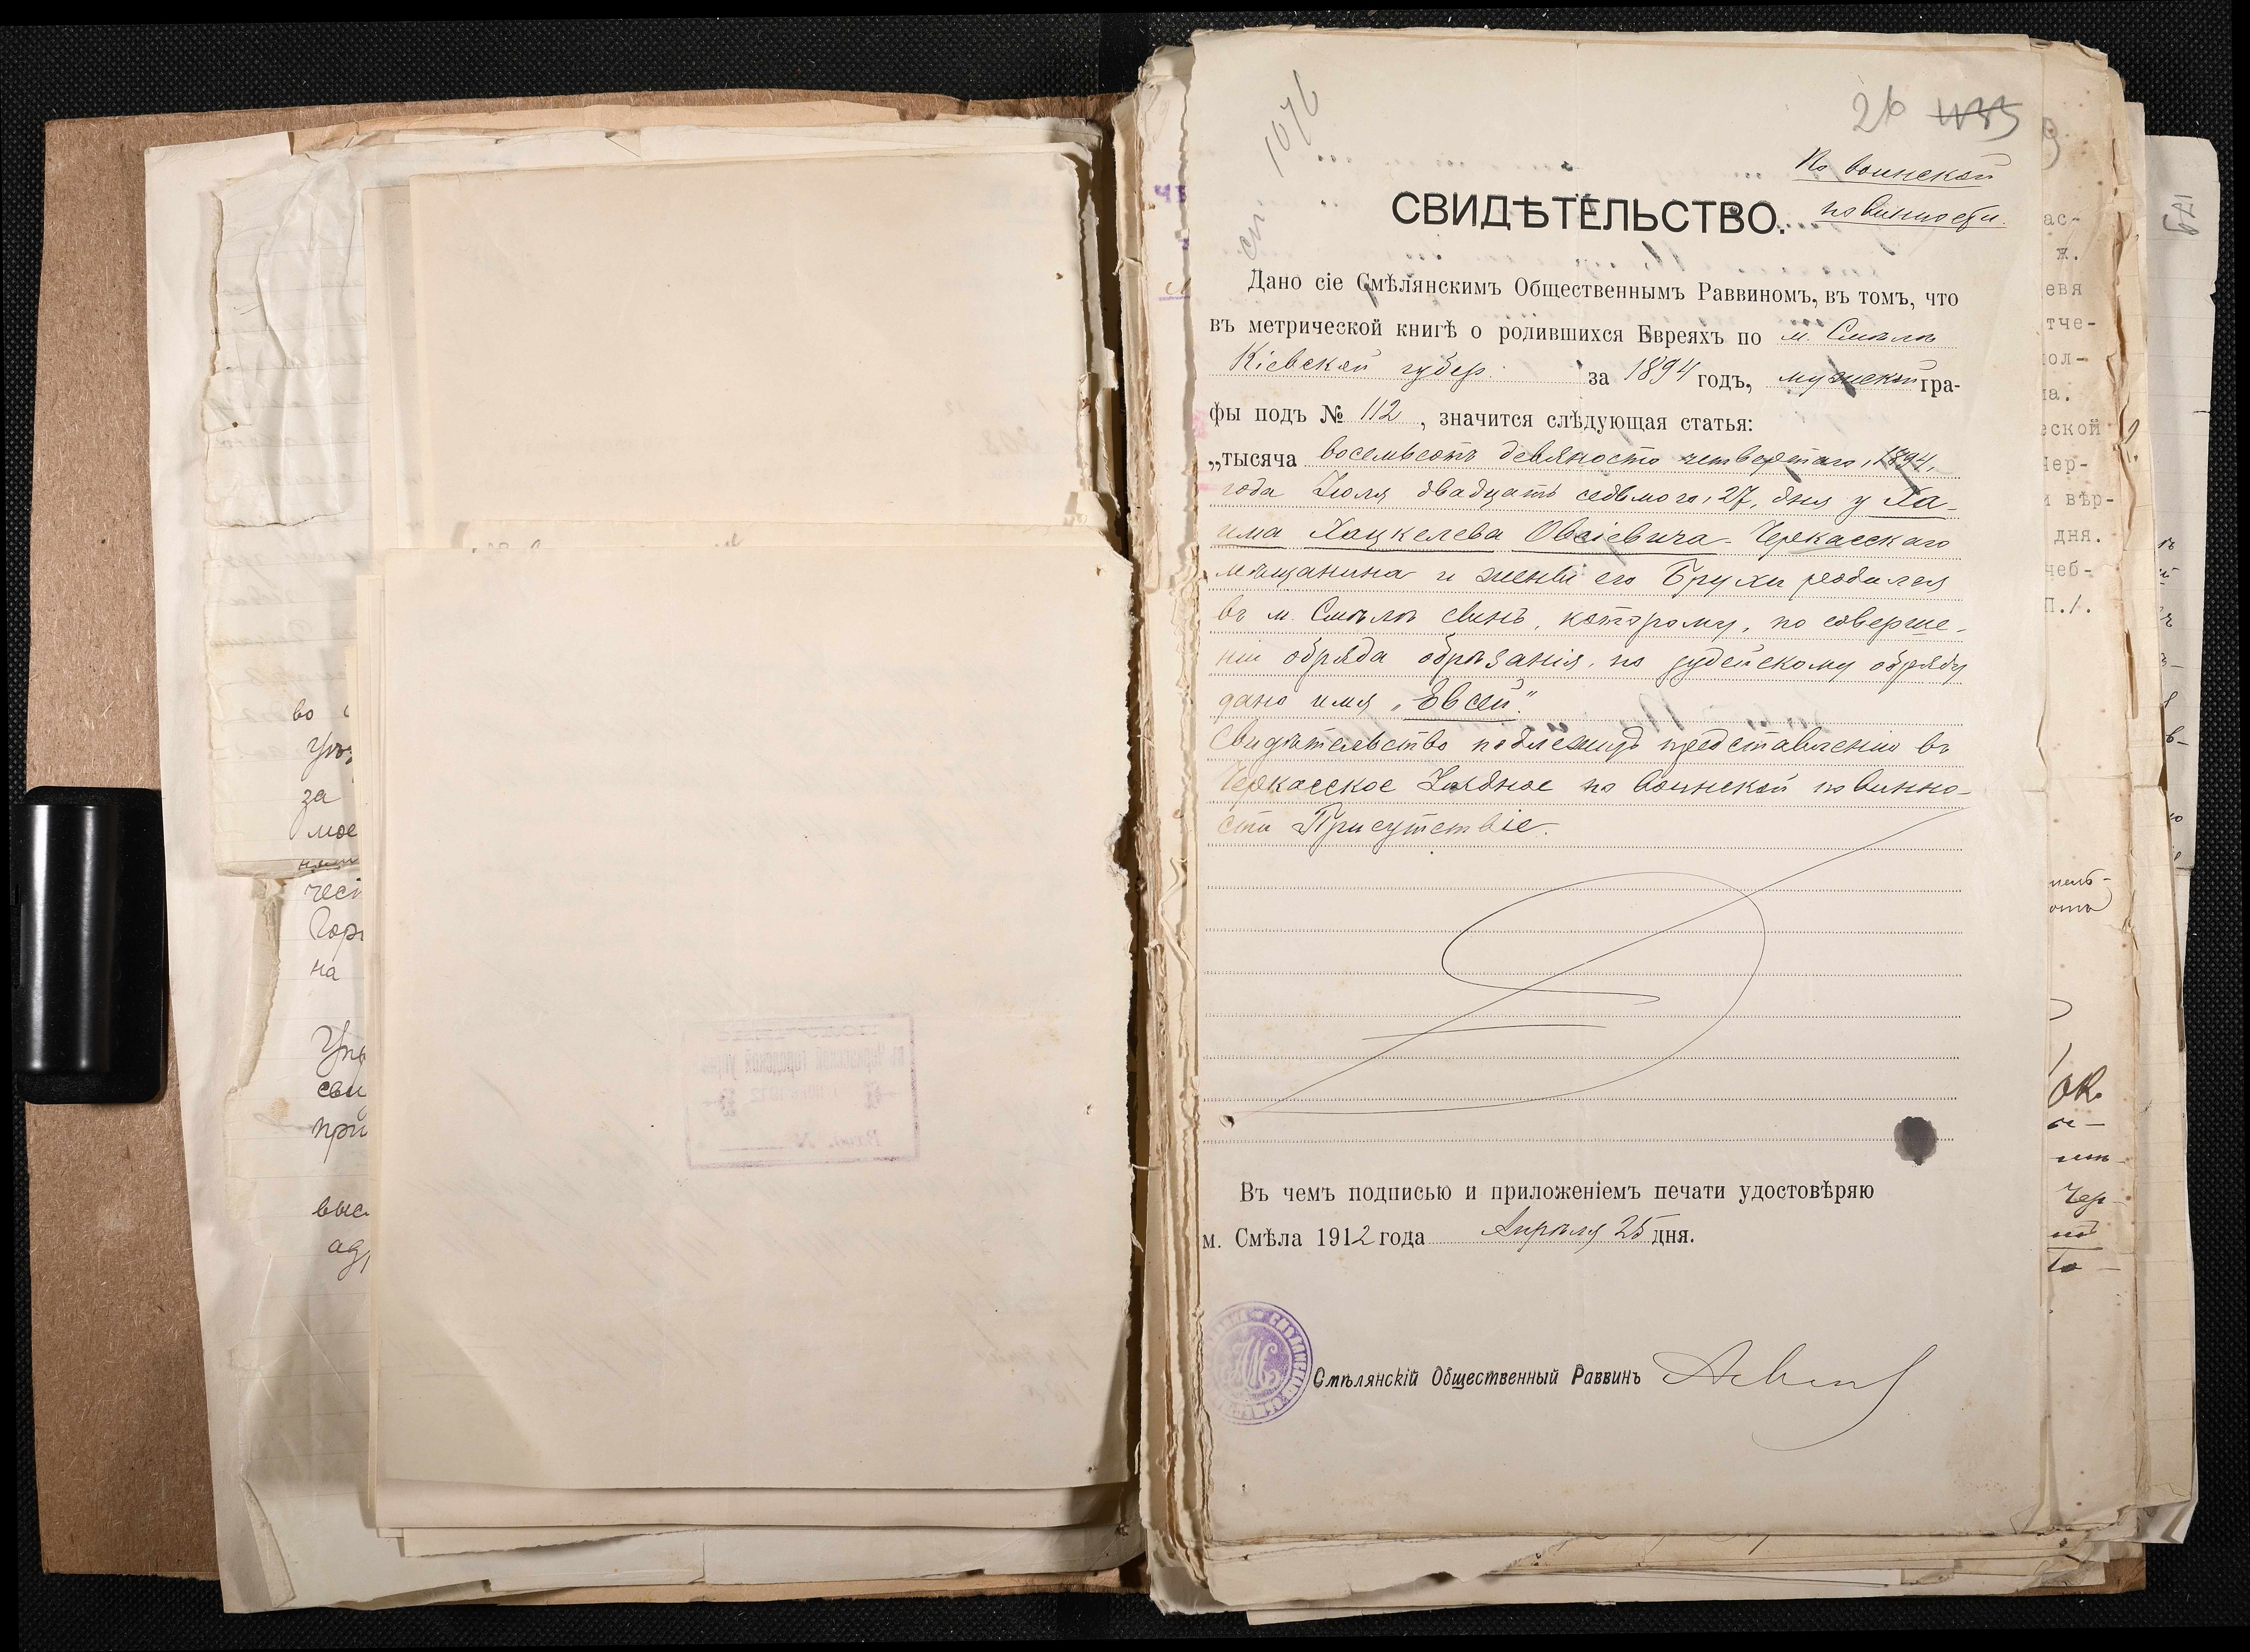 во
за
мое
чест
на
при
26
1076
По воинской
повинности.
СВИДѢТЕЛЬСТВО.
Дано сіе Смѣлянскимъ Общественнымъ Раввиномъ, въ томъ, что
въ метрической книгѣ о родившихся Евреяхъ по м. Смѣлѣ
Кіевской губер. за 1894 годъ, мужской гра-
фы подъ № 112, значится слѣдующая статья:
„тысяча восемьсотъ девяносто четвертаго, 1894,
года Іюля двадцать седьмого, 27, дня у Ха-
има Хацкелева Овсіевича - Черкасскаго
мѣщанина и жены его Брухи родился
въ м. Смѣлѣ сынъ, которому, по соверше-
ніи обряда обрѣзанія, по іудейскому обряду
дано имя „Евсей".
Свидѣтельство подлежитъ представленію въ
Черкасское Уѣздное по воинской повинно-
сти Присутствіе.
Въ чемъ подписью и приложеніемъ печати удостовѣряю
м. Смѣла 1912 года Апрѣля 25 дня.
Смѣлянскій Общественный Раввинъ
ас-
ж.
евя
тче-
ол-
а.
еской
чер-
и вѣр-
дня.
чеб-
п.1.